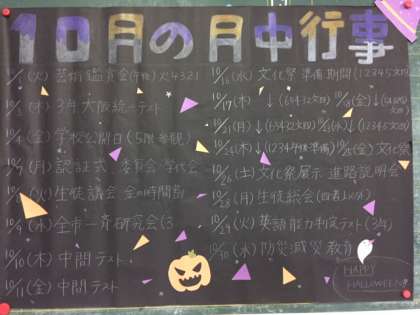 10月の月中行事
10/1(火) 芸術鑑賞会(午後)火4321
10/3(木) 3年大阪統一テスト
10/4(金) 学校公開日(5限参観)
10/7(月) 認証式、委員会・学代会
(火) 生徒議会 金の時間割
10/9(水) 全市一斉研究会(3
10/10(木) 中間テスト
10/11(金) 中間テスト
10/16(水) 文化祭準備期間(12345文)
10/17(木) ↓ 10/18(金) ↓
(月) ↓ (水) ↓(12345文)
10/24(木) ↓ 10/25(金) 文化祭
10/26(土) 文化祭展示 進路説明会
10/28(月) 生徒総会
10/29(火) 英語能力判定テスト(3年)
10/30(水) 防災減災教育
HAPPY
HALLOWEEN